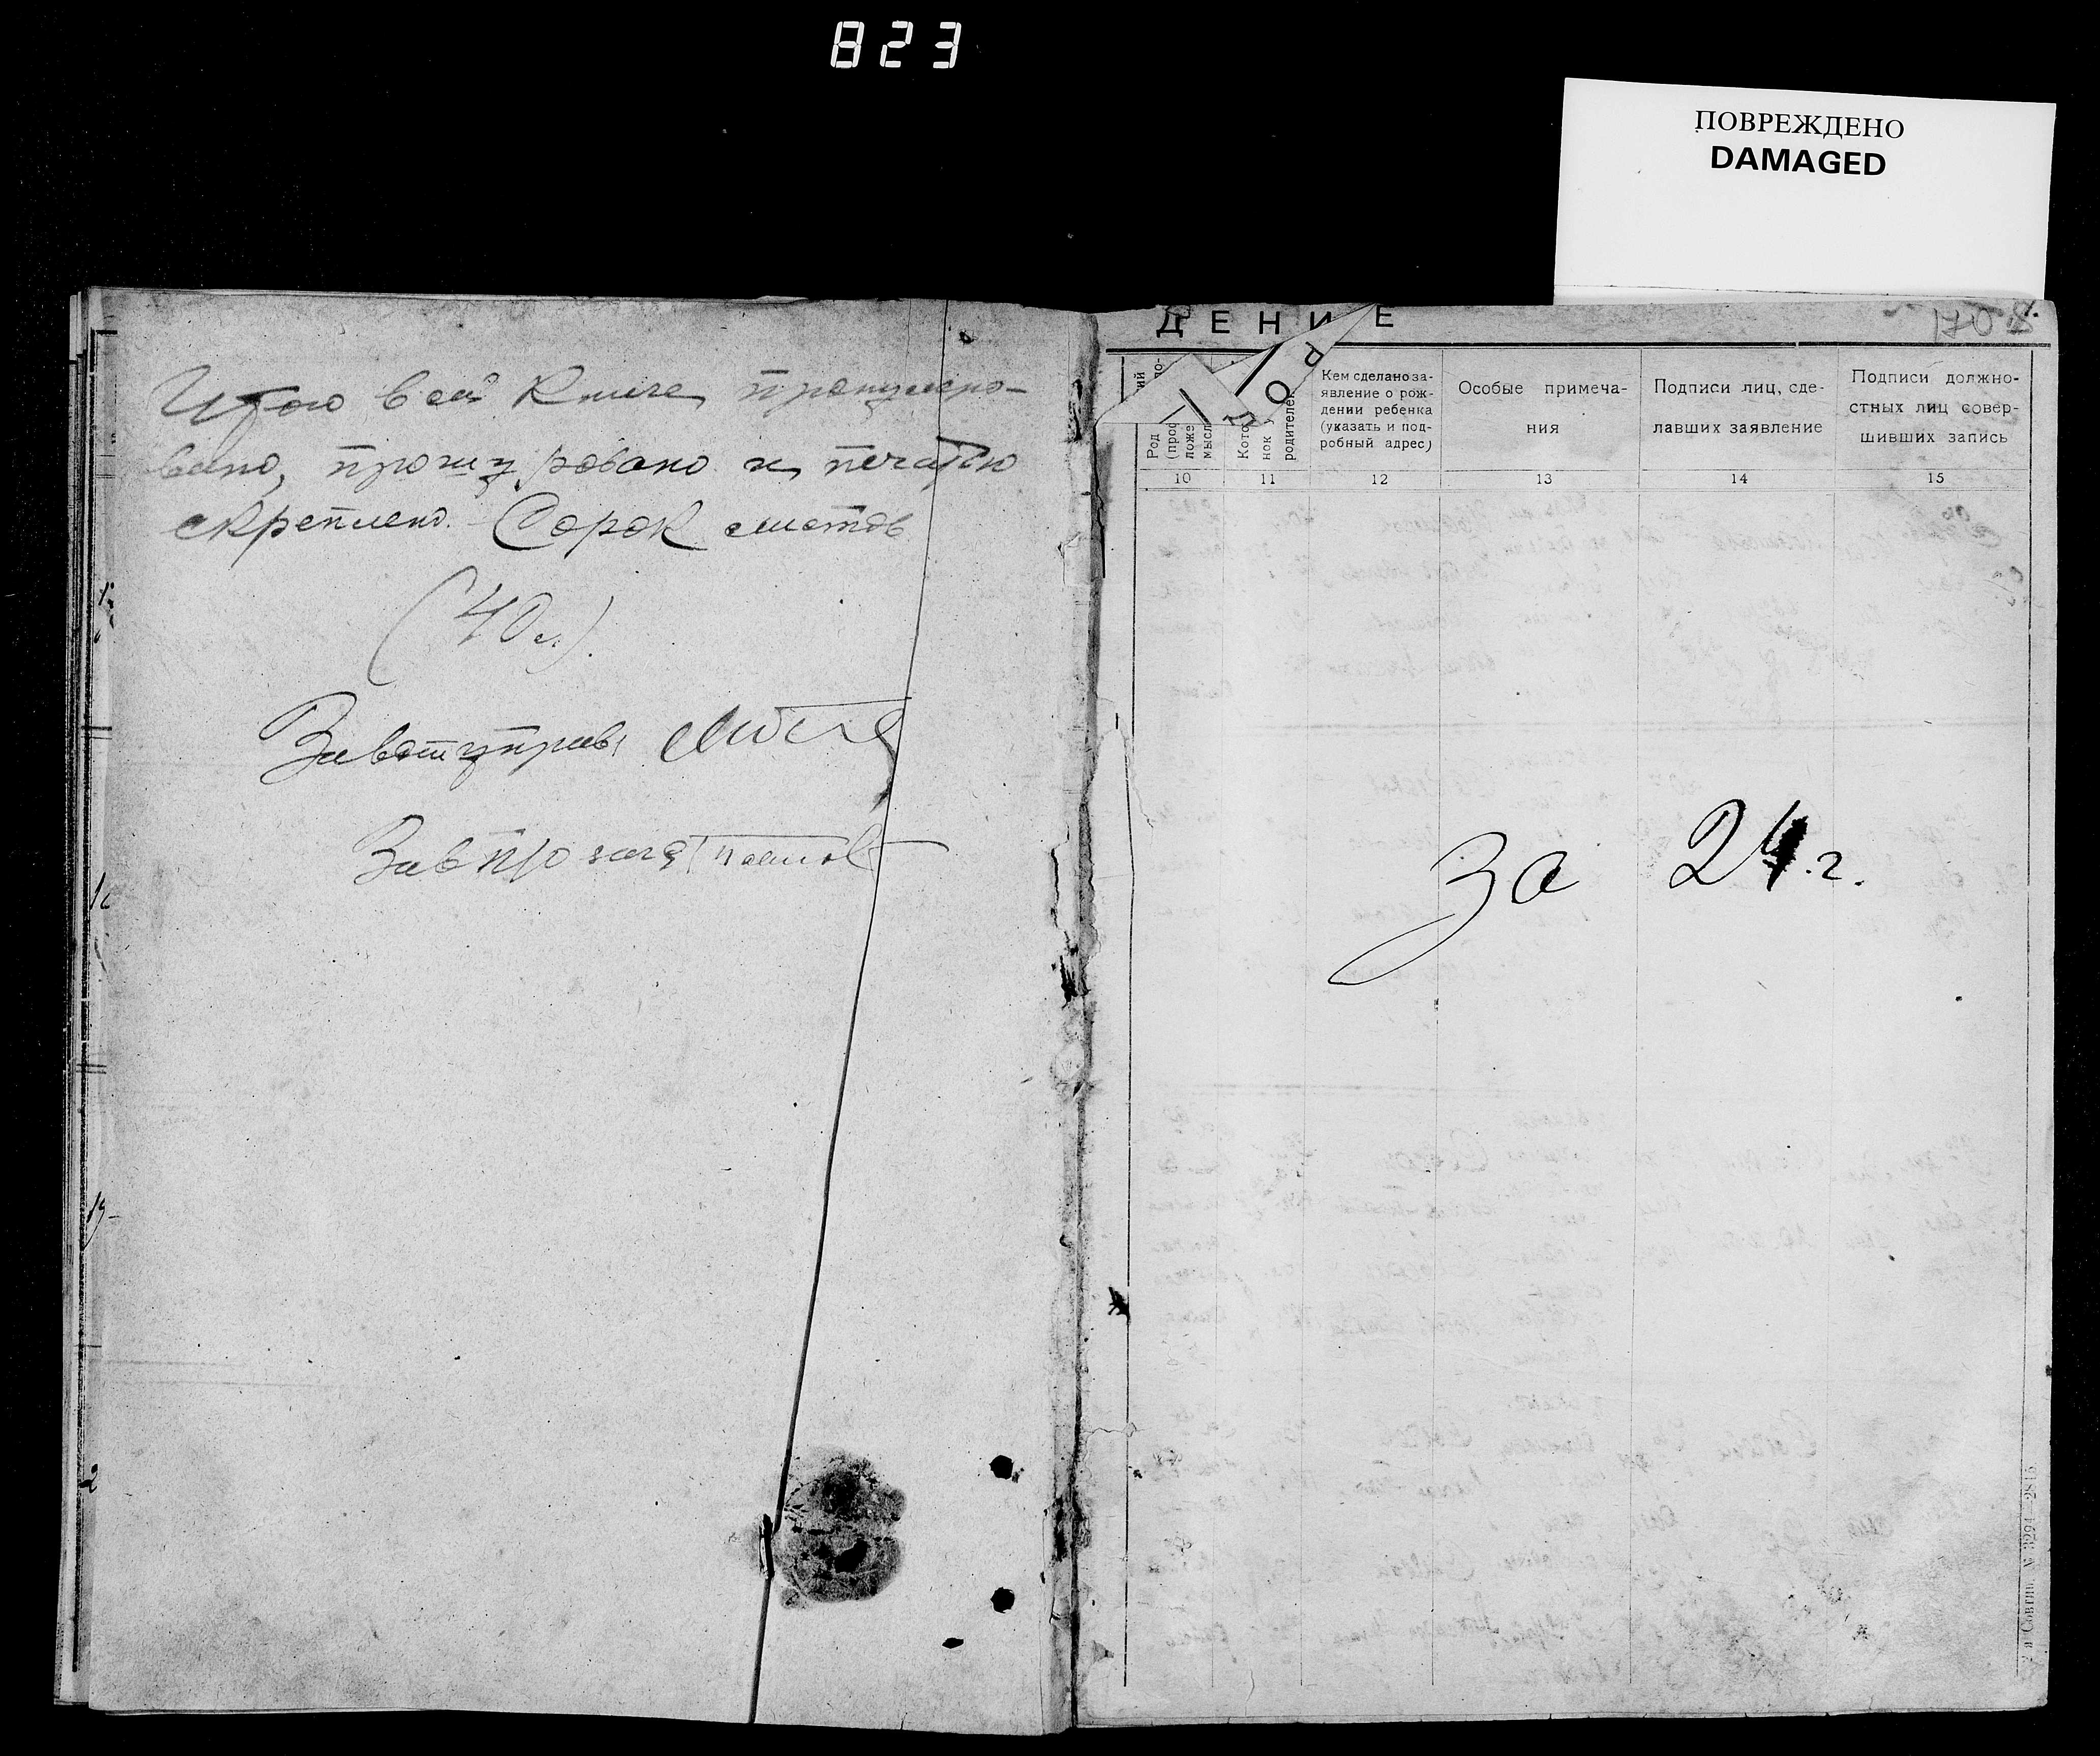 823
ПОВРЕЖДЕНО
DAMAGED
Итого в сей Книге пронумеро-
вано, прошнуровано и печатью
скреплено. Сорок листов
(40 л).
Завотуправ
ДЕНИЕ
Р
О
Род
(проф
ложе
мысл
10
Кото
нок
родителей
11
Кем сделано за-
явление о рож-
дении ребенка
(указать и под-
робный адрес)
12
Особые примеча-
ния
13
Подписи лиц, сде-
лавших заявление
14
Подписи должно-
стных лиц совер-
шивших запись
15
За 24.г.